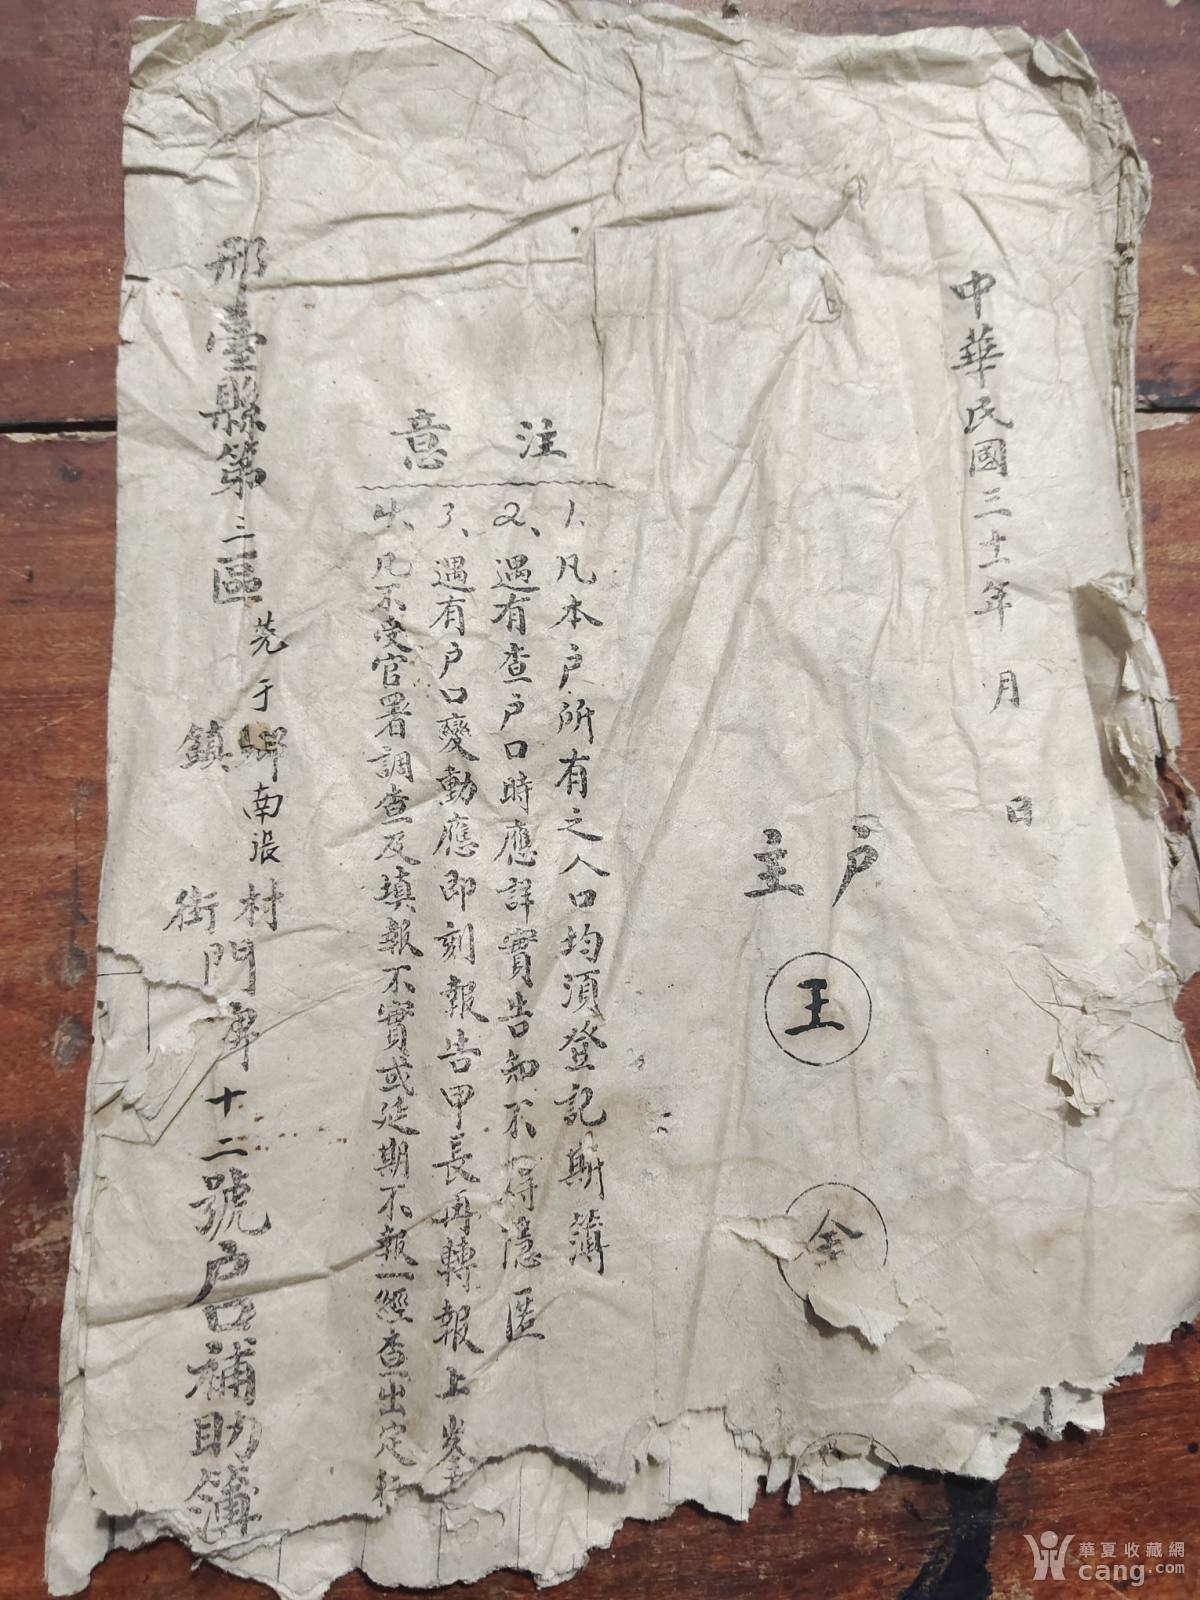 中華民國三十二年 月 日
户主
王
全
注意
1、凡本户所有之人口均須登記斯簿
2、遇有查户口時應詳實告知不得隱匿
3、遇有户口變動應即刻報告甲長再轉報上峯
4、凡不受官署調查及填報不實或延期不報一經查出定
邢臺縣第三區
于鄉鎮
南張村街
門牌十二號户口補助簿
華夏收藏網
cang.com